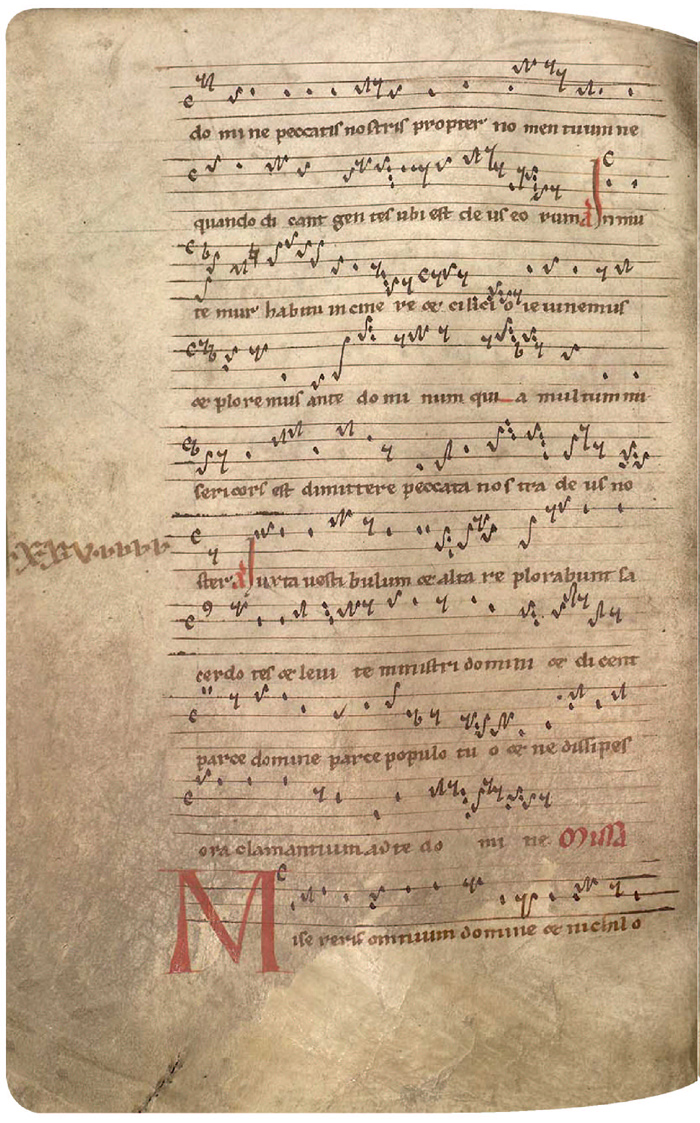 do mi ne peccatis nostris propter no men tuum ne
quando di cant gen tes ubi est de us eo rum a Inmu
te mur habitu in cine re et cilici o ieiunemus
et ploremus ante do mi num qui a multum mi
sericors est dimittere peccata nos tra de us no
ster a Iuxta vesti bulum et alta re plorabunt sa
cerdo tes et levi te ministri domini et di cent
parce domine parce populo tu o et ne dissipes
ora clamantium ad te do mi ne Missa
Mise reris omnium domine et nichil o